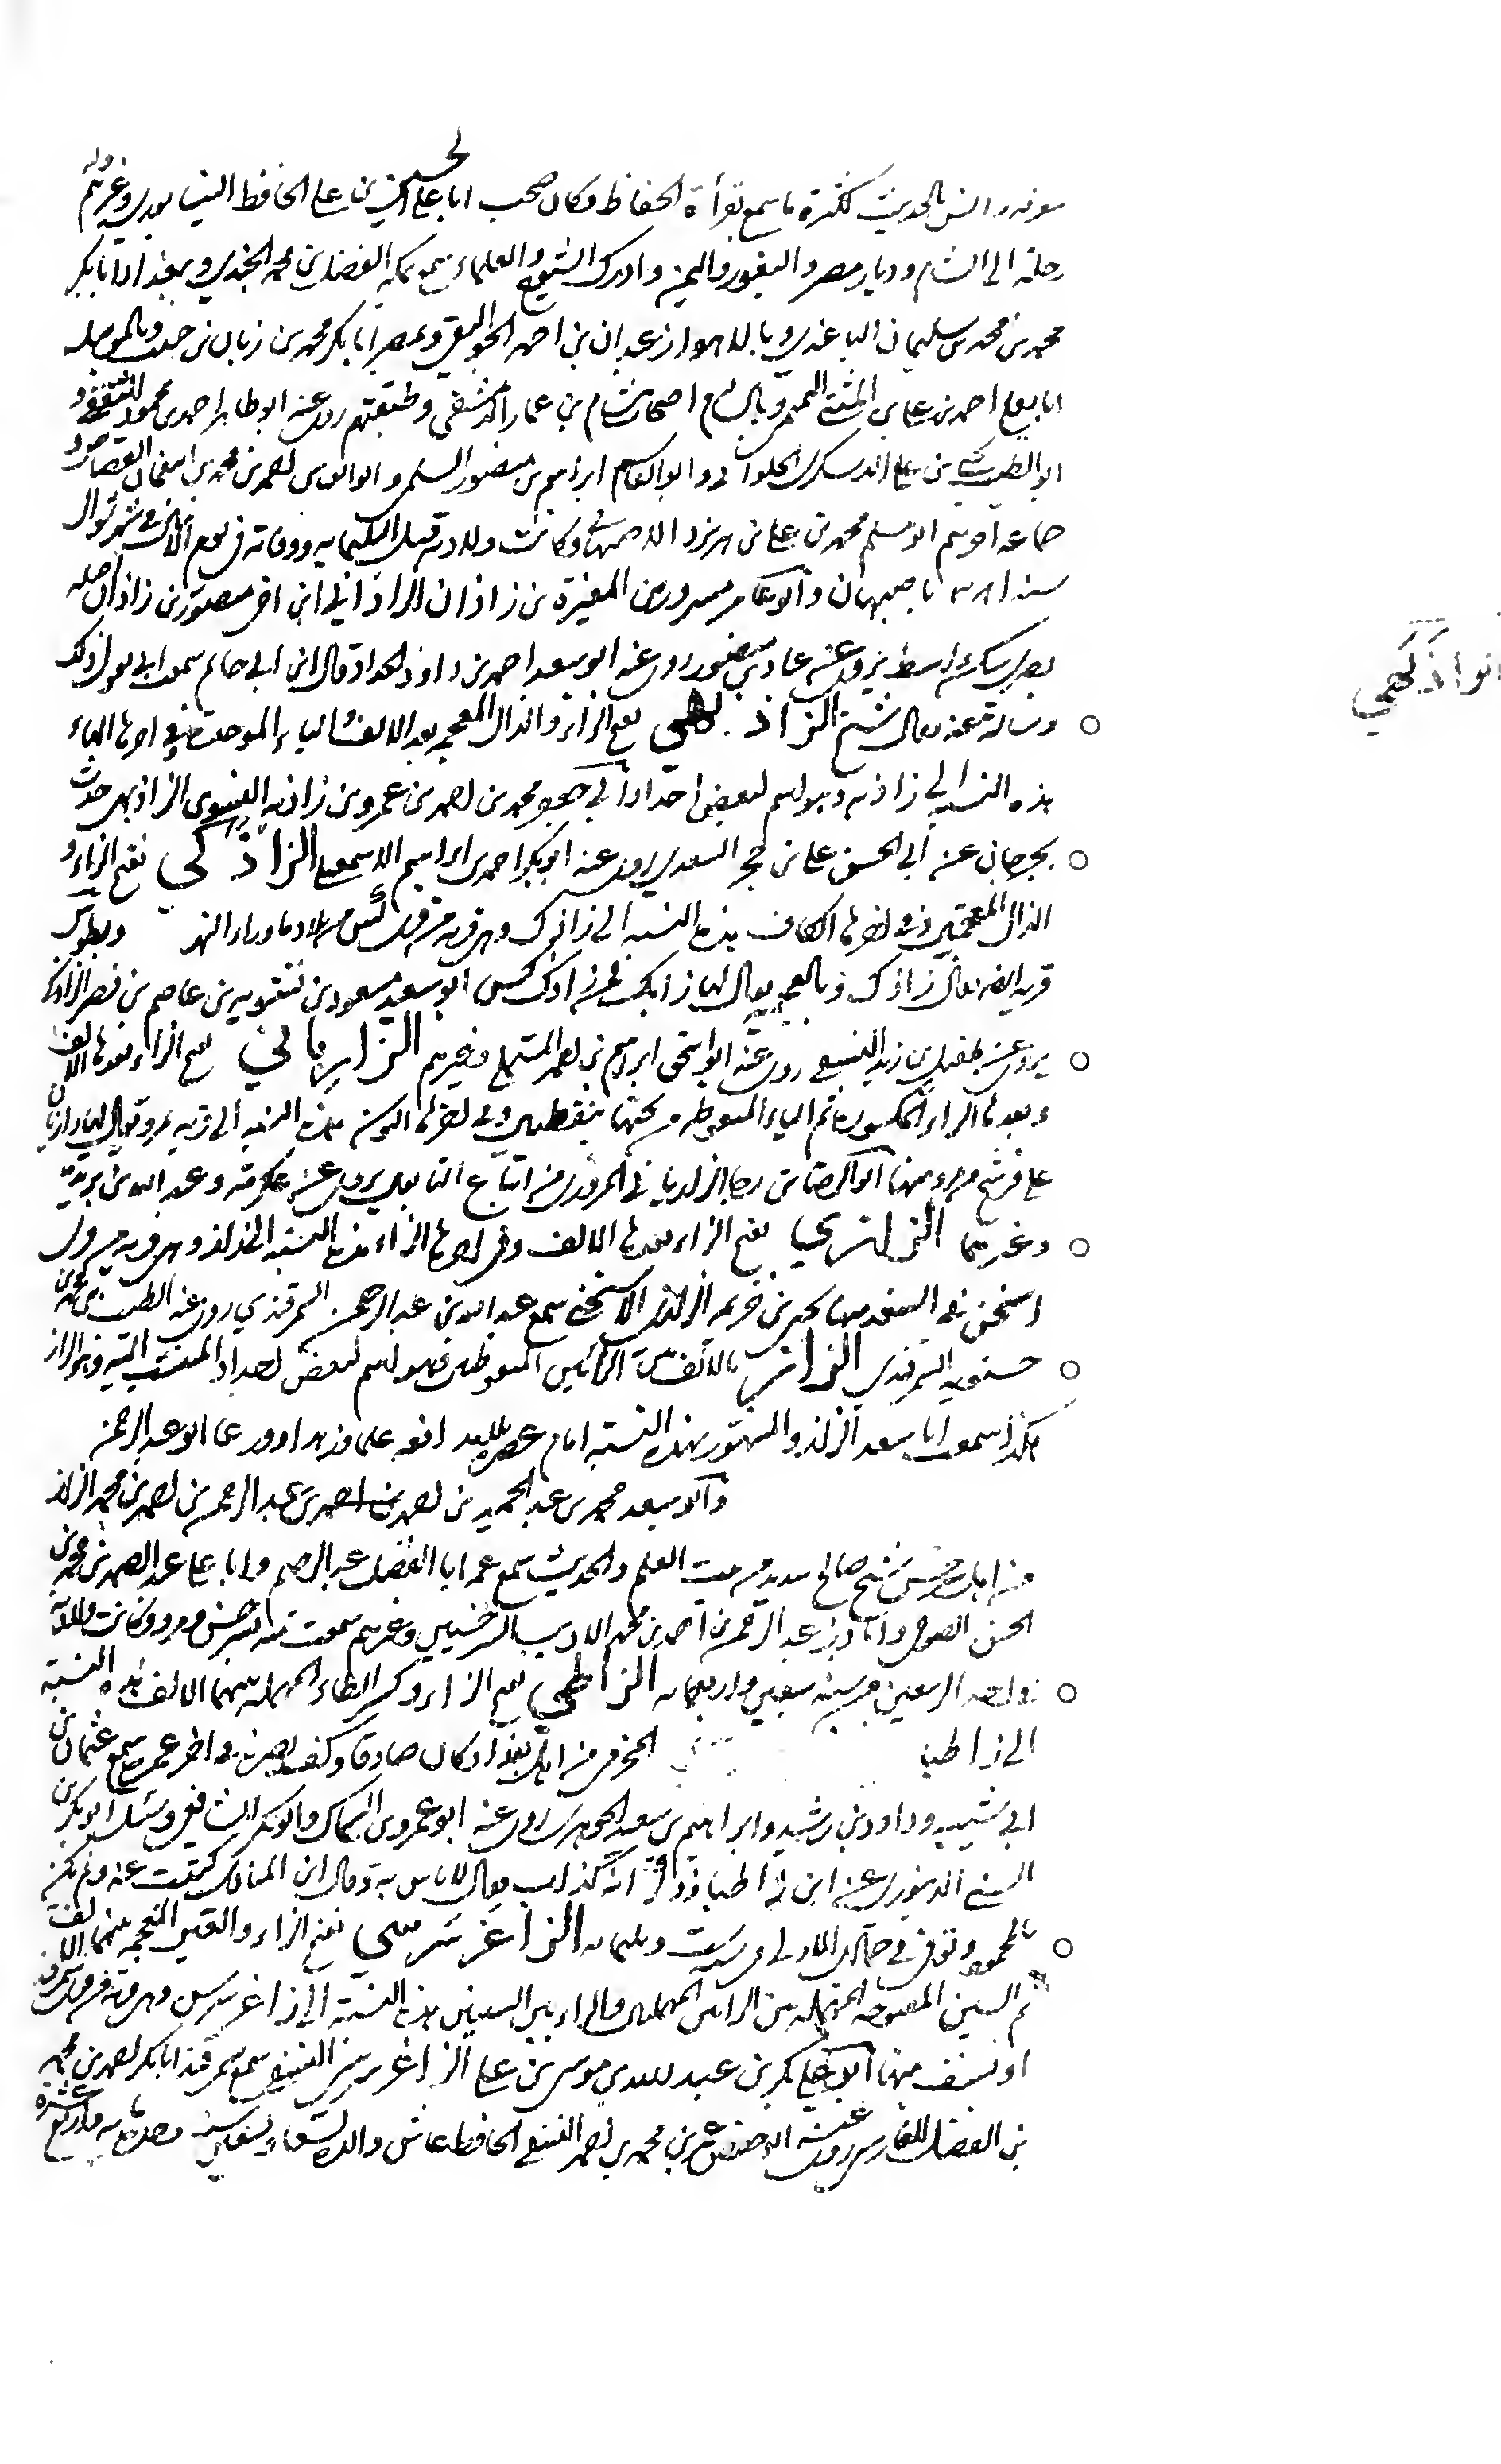 معرفة وانس بالحديث لكثرة ما سمع بقرأة الحفاظ وكان صحب ابا علي الحسين بن علي الحافظ النيسابوري وغيرهم وله
رحلة الى الشام وديار مصر والثغور واليمن وادرك الشيوخ والعلماء سمع بمكة المفضل بن محمد الجندي وببغداد ابا بكر
محمد بن محمد بن سليمان الباغندي وبالاهواز عبدان بن احمد الجواليقي وبمصر ابا بكر محمد بن زبان بن حبيب وبالموصل
ابا يعلى احمد بن علي بن المثنى التميمي وبالشام اصحاب هشام بن عمار الدمشقي وطبقتهم روى عنه ابو طاهر احمد بن محمود الثقفي و
ابو الطيب بن علي الدسكري الحلواني وابو القاسم ابراهيم بن منصور السلمي وابو العباس احمد بن محمد بن النعمان القصاص و
جماعة اخرهم ابو مسلم محمد بن علي بن مهربزد الاصبهاني وكانت ولادته قبل وفاته في يوم الاثنين في شهر شوال
سنة باصبهان وابو عامر مسرور بن المغيرة بن زاذان الزاذاني ابن اخي منصور بن زاذان اصله
بصري سكن واسط يروي عنه عباد بن منصور روى عنه ابو سعيد احمد بن داود الحداد قال ابن ابي حاتم سمعت ابي يقول ذلك
وسالته عنه فقال شيخ الزاذبهي بفتح الزاء والذال المعجمة بعد الالف والباء الموحدة وفي اخرها الهاء
هذه النسبة الى زاذبه وهو اسم لبعض اجداد ابي جعفر محمد بن احمد بن عمرو بن زاذبه النسوي الزاذبهي حدث
بجرجان عن ابي الحسن علي بن حجر السعدي روى عنه ابو بكر احمد بن ابراهيم الاسمعيلي الزاذكي بفتح الزاء و
الذال المعجمتين وفي اخرها الكاف هذه النسبة الى زاذك وهي قرية من قرى كس من بلاد ما وراء النهر وبطوس
قرية ايضا يقال زاذك وبالعجمية يقال لها زايك فمن زاذك كس ابو سعيد مسعود بن نتقويه بن عاصم بن نصر الزاذكي
يروي عن طفيل بن زيد النسفي روى عنه ابو اسحق ابراهيم بن احمد المستملي وغيرهم الزارياني بفتح الزاء بعدها الالف
وبعدها الراء المكسورة ثم الياء المنقوطة من تحتها بنقطتين وفي اخرها النون هذه النسبة الى قرية بمرو يقال لها زاريان
على فرسخ من مرو منها ابو الرضا بن رجا الزارياني المروزي من اتباع التابعين يروي عن عكرمة وعبد الله بن بريدة
وغيرهما الزازي بفتح الزاء بعدها الالف وفي اخرها الزاء هذه النسبة الى زاز وهي قرية من قرى
اشتيخن في السغد منها يحيى بن خزيمة الزازي الاشتيخني سمع عبد الله بن عبد الرحمن السمرقندي روى عنه الطيب بن محمد بن
حشويه السمرقندي الزاز بالالف بين الزائين المنقوطتين فهو اسم لبعض اجداد المنتسب اليه وهو الزاز
هكذا سمعت ابا سعد الزاز والمشهور بهذه النسبة امام عصره بلا مدافعة علما وزهدا وورعا ابو عبد الرحمن
وابو سعد محمد بن عبد الحميد بن احمد بن احمد بن عبد الرحمن بن احمد بن محمد الزاز
من اهل سرخس شيخ صالح سديد من بيت العلم والحديث سمع عمه ابا الفضل عبد الرحيم وابا علي عبد الصمد بن محمد بن
الحسن الصوفي وابا عبد الرحمن بن احمد بن محمد الاديب السرخسيين وغيرهم سمعت منه بسرخس ومرو وكانت ولادته
سنة سبعين واربعمائة الزاطي بفتح الزاء وكسر الطاء المهملة بينهما الالف هذه النسبة
الى زاطيا المخرمي من اهل بغداد كان صادقا وكف بصره في اخر عمره سمع عثمان بن
ابي شيبة وداود بن رشيد وابراهيم بن سعيد الجوهري روى عنه ابو عمرو بن السماك وابو بكر الشافعي وسئل ابو بكر بن
السني الدينوري عن ابن زاطيا انه كذاب فقال لا باس به وقال ابن المنادي كتبت عنه ولم يكن
بالمحمود وتوفي في جمادى الاولى وثلثمائة الزاغرسرسي بفتح الزاء والغين المعجمة بينهما الالف
ثم السين المفتوحة المهملة بين الرائين المهملتين والراء بين السينين هذه النسبة الى زاغرسرس وهي قرية من قرى سمرقند
او نسف منها ابو علي بكر بن عبد الله بن موسى بن علي الزاغرسرسي النسفي سمع بسمرقند ابا بكر احمد بن محمد
بن الفضل الفارسي روى عنه ابو حفص عمر بن محمد بن احمد النسفي الحافظ عاش والده
الزاذكي